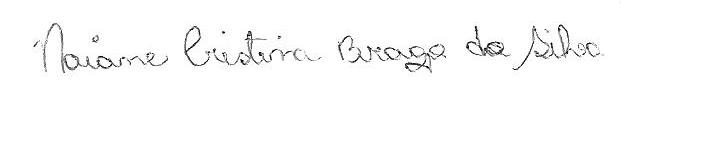 Naiane Cristina Braga da Silva